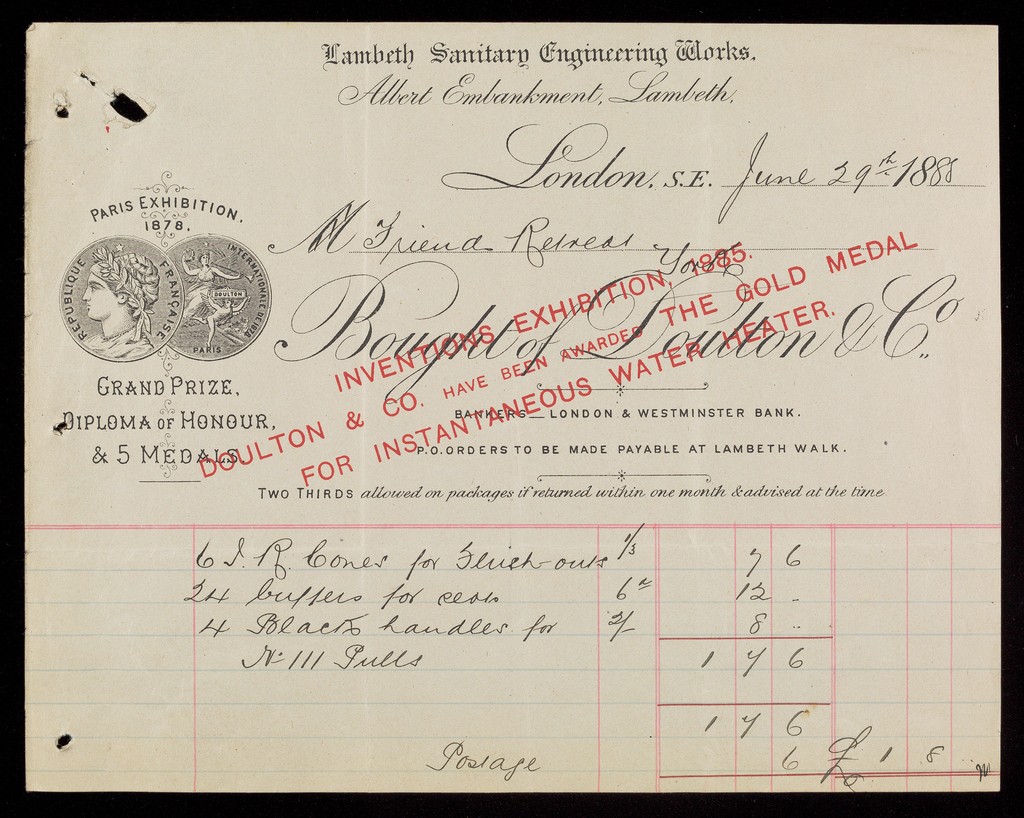 Lambeth Sanitary Engineering Works.
Albert Embankment, Lambeth,
London, S.E. June 29th 1888
PARIS EXHIBITION,
1878.
REPUBLIQUE FRANÇAISE
INTERNATIONALE DE 1878
DOULTON
PARIS
GRAND PRIZE,
DIPLOMA OF HONOUR,
& 5 MEDALS.
M Friend Retreat
York
Bought of Doulton & Co.,
INVENTIONS EXHIBITION, 1885.
DOULTON & CO. HAVE BEEN AWARDED THE GOLD MEDAL
FOR INSTANTANEOUS WATER HEATER.
BANKERS—LONDON & WESTMINSTER BANK.
P.O. ORDERS TO BE MADE PAYABLE AT LAMBETH WALK.
TWO THIRDS allowed on packages if returned within one month & advised at the time
6 I. R. Cones for Flush-outs 1/3 7 6
24 buffers for seats 6d 12 -
4 Black handles for 2/- 8 ..
No 111 Pulls 1 7 6
1 7 6
Postage 6 £ 1 8